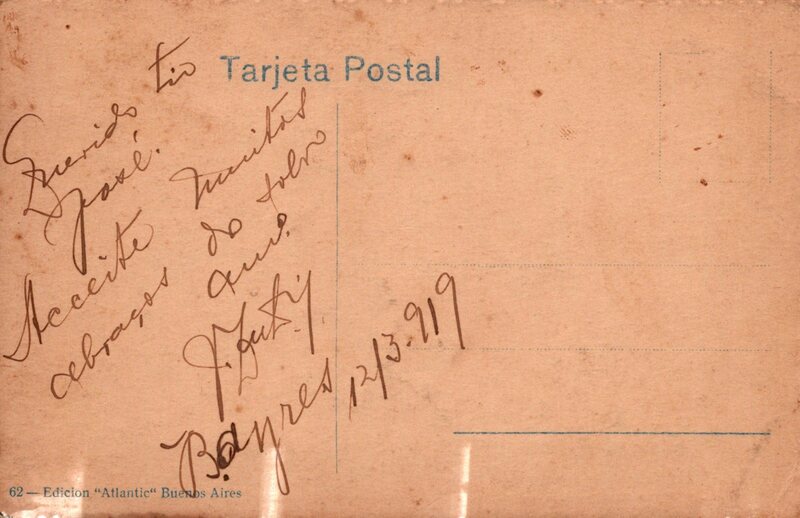 Tarjeta Postal
Querido tio
José.
Acceite muitos
abraços do
am.º
J.
B. ayres 12/3.919
62 — Edicion "Atlantic" Buenos Aires